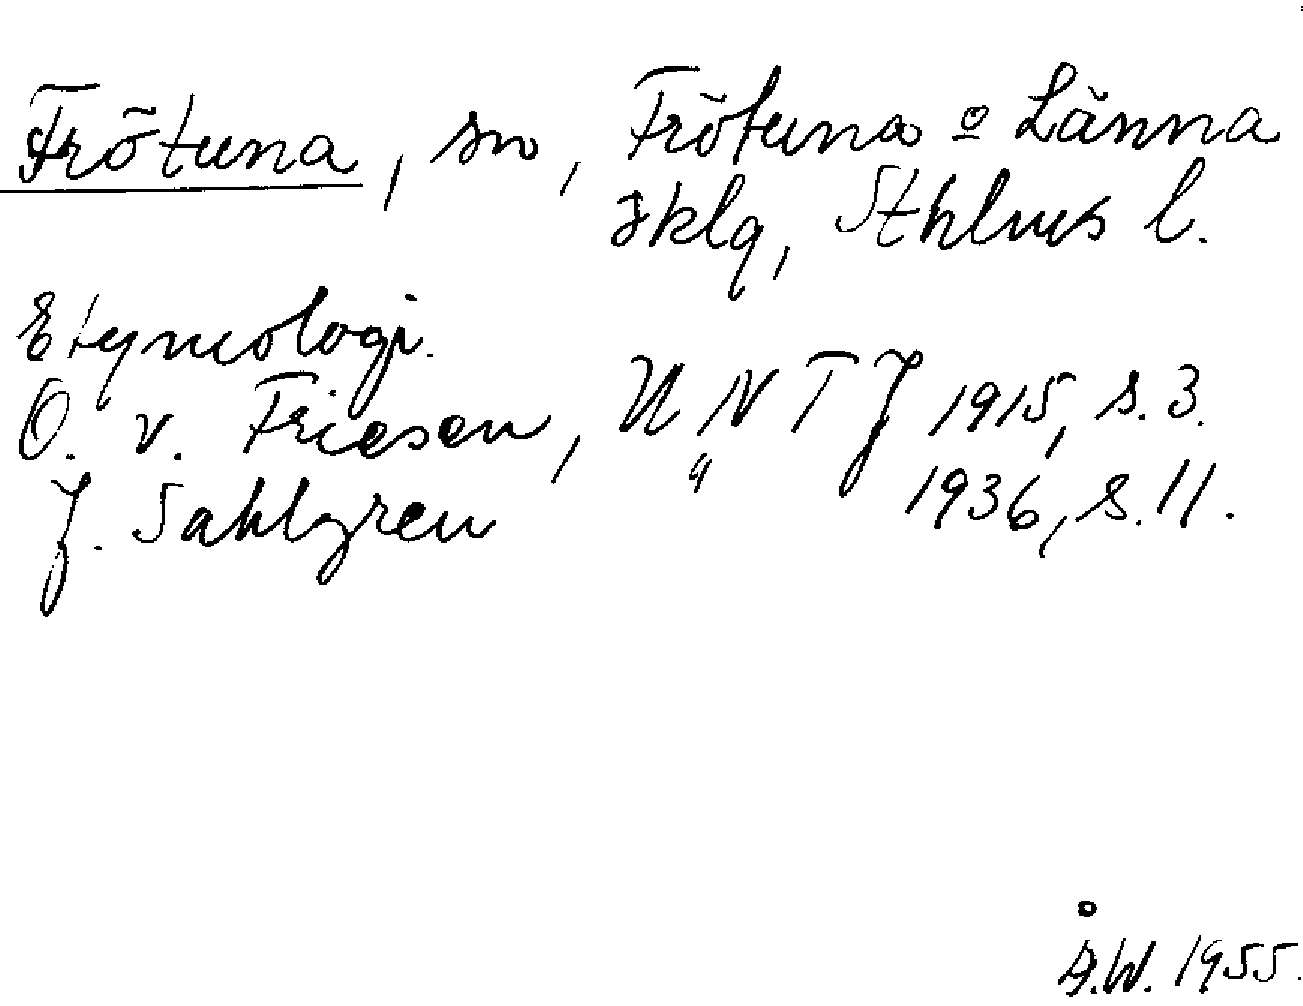 Frötuna, sn, Frötuna o Länna
sklg, Sthlms l.
Etymologi.
O. v. Friesen, UNTJ 1915, s. 3.
J. Sahlgren " 1936, s. 11.
Å.W. 1955.